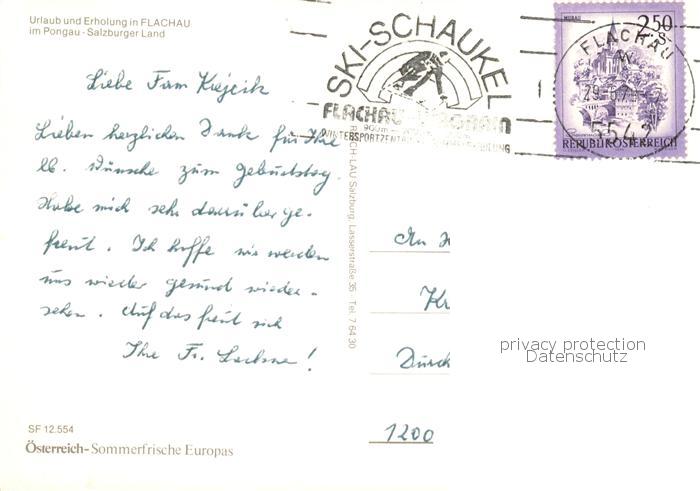 Urlaub und Erholung in FLACHAU
im Pongau - Salzburger Land
Liebe Fam Krejcik
Lieben herzlichen Dank für Ihre
lb. Wünsche zum Geburtstag.
Habe mich sehr darüber ge-
freut. Ich hoffe wir werden
uns wieder gesund wieder-
sehen. Auf das freut sich
Ihre Fr. !
SF 12.554
Österreich-Sommerfrische Europas
RUCH-LAU Salzburg, Lasserstraße 35 Tel. 7 64 30
SKI-SCHAUKEL
FLACHAU WAGRAIN
900m
WINTERSPORTZENTRUM
MURAU
2.50
S
REPUBLIK ÖSTERREICH
FLACHAU
5542
An
Kr
Durch
1200
privacy protection
Datenschutz